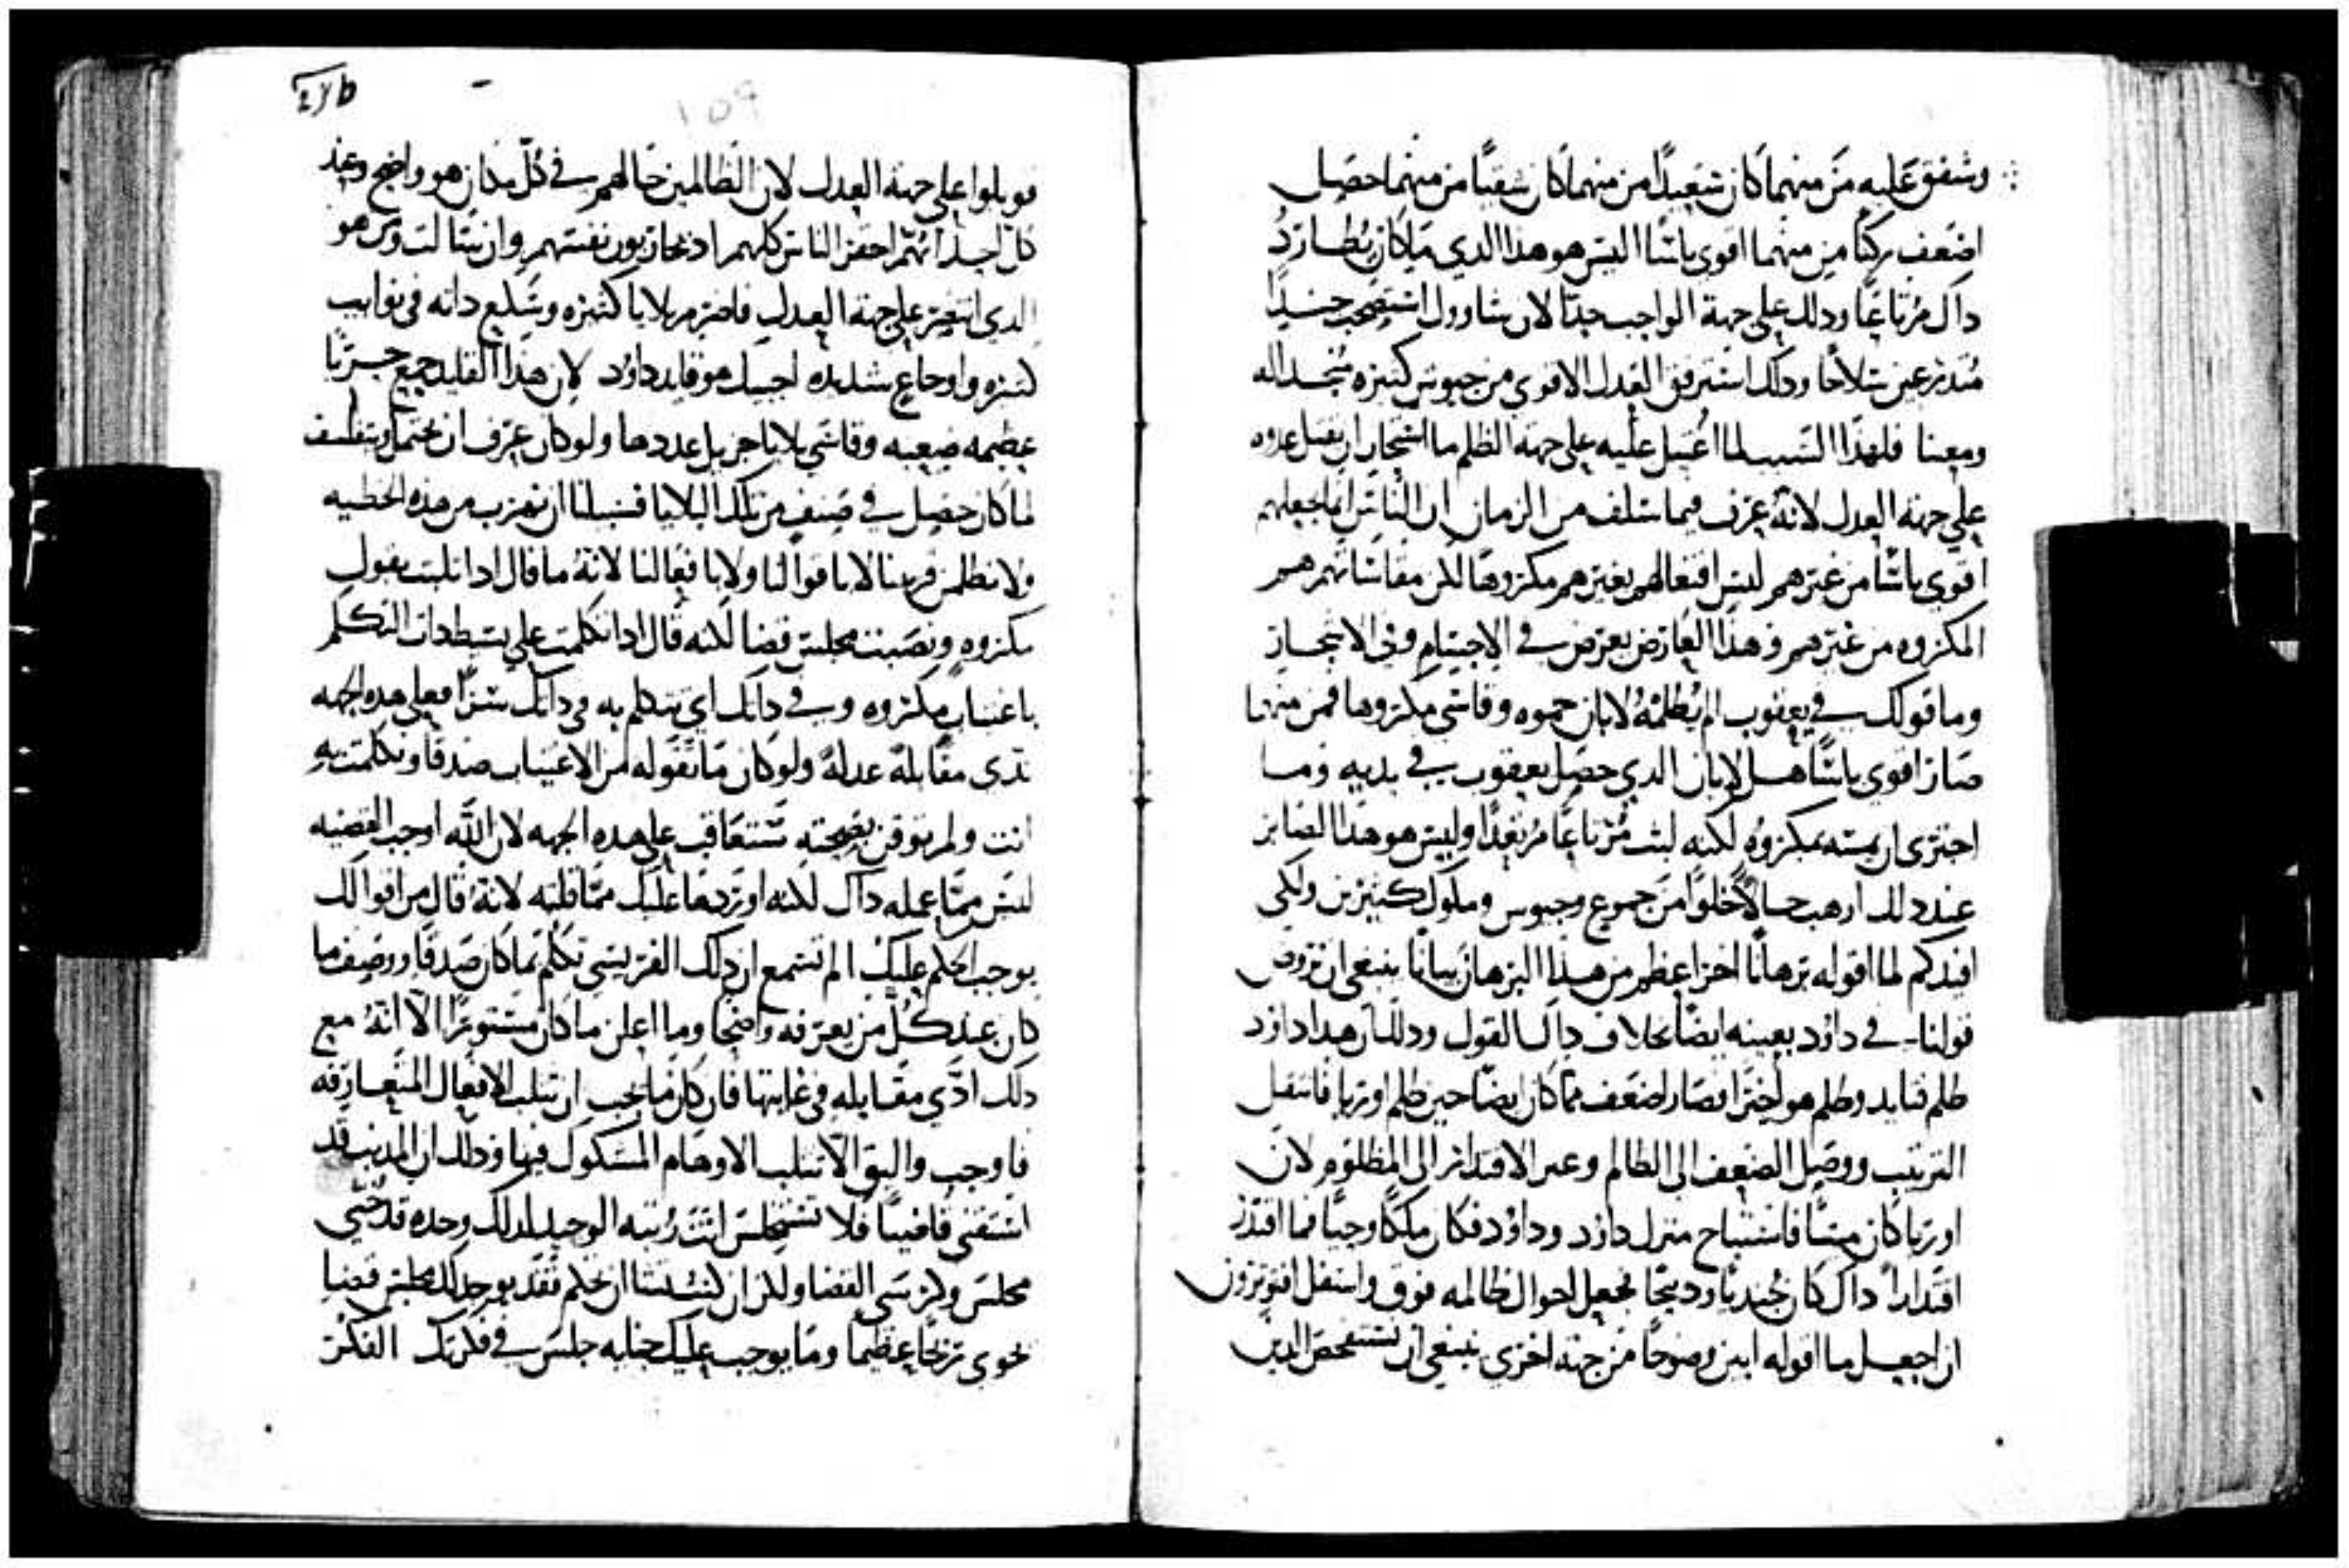 وشفق عليه من منهما كان سعيداً من منهما كان شقياً من منهما حصل
اضعف ركناً من منهما اقوى باسًا اليس هو هذا الدي كان يطارد
داك مرتاعًا ودلك على جهة الواجب جدًا لان شاوول استصحب جندًا
متدرعين سلاحًا ودلك استرفق العدل الاقوى من جيوش كثيره منجداله
ومعينا فلهدا السبب لما اغتيل عليه على جهة الظلم ما استجاز ان يقتل عدوه
على جهة العدل لانه عرف فيما سلف من الزمان ان الناس انما يجعلهم
اقوى باسًا من غيرهم ليس افعالهم بغيرهم مكروهًا لكن مقاساتهم هم
المكروه من غيرهم وهذا العارض يعرض في الاجسام وفي الاشجار
وما قولك في يعقوب الم يظلمه لابان حموه وقاسى مكروها فمن منهما
صار اقوى باسًا هل لابان الدي حصل يعقوب في يديه وما
اجترى ان يمسه بمكروه لكنه لبث مرتاعًا مرتعدًا وليس هو هذا الصابر
عند دلك ارهب حالاً خلوًا من جموع وجيوش وملوك كثيرين ولكي
افيدكم لما اقوله برهانًا اخر اعظم من هذا البرهان بيانًا ينبغي ان نروض
قولنا في داود بعينه ايضًا بخلاف داك القول ودلك ان هدا داود
ظلم فتايد وظلم هو اخيرًا فصار اضعف مما كان ايضًا حين ظلم اوريا فانتقل
الترتيب ووصل الضعف الى الظالم وعبر الاقتدار الى المظلوم لان
اوريا كان ميتًا فاستباح منزل داود وداود فكان ملكًا وحيًا فما اقتدر
اقتداراً داك كان جنديًا ودبيحًا يجعل احوال ظالمه فوق واسفل افتوثرون
ان اجعل ما اقوله ابين وضوحًا من جهة اخرى ينبغي ان نستفحص الدين
قوبلوا على جهة العدل لان الظالمين حالهم في كل مكان هو واضح وعند
كل احد انهم احقر الناس كلهم اد يحاربون نفسهم وان سالت ومن هو
الدي انتصر على جهة العدل فاضرم بلايا كثيره وسلع داته في نوايب
كثيره واوجاع شديده اجبتك هو قايد داود لان هدا القايد جمع حربًا
عظيمه صعبه وقاسى بلايا جزيل عددها ولو كان عرف ان يحتمل ويتفلسف
لما كان حصل في صنف من تلك البلايا فسبيلنا ان نهرب من هذه الخطيه
ولا نظلمن قريبنا لا باقوالنا ولا بافعالنا لانه ما قال ادا ثلبت بقول
مكروه ونصبت مجلس قضا لكنه قال ادا تكلمت على بسيط دات التكلم
باغتياب مكروه وفي داتك اي تتكلم به في داتك سرًا فعلى هده الجهه
تدي مقابلة عدله ولو كان ما تقوله من الاغتياب صدقًا وتكلمت به
انت ولم توقن بصحته ستعاقب على هده الجهه لان الله اوجب القضيه
ليس مما عمله داك لكنه اوردها عليك مما قلته لانه قال من اقوالك
يوجب الحكم عليك الم تسمع ان دلك الفريسي تكلم بما كان صدقًا ووصف ما
كان عند كل من يعرفه واضحًا وما اعلن ما كان مستورًا الا انه مع
دلك ادى مقابله في غايتها فان كان ما يجب ان تثلب الافعال المتعارفه
فاوجب واليق الا تثلب الاوهام المشكوك فيها ودلك ان المدنب قد
استقنى قاضيًا فلا تستخلس انت رتبه الوحيد لدلك وحده قد خبي
مجلس وكرسي القضا ولكن ان كنت تشا ان تحكم فقد يوجد لك مجلس قضا
يحوي ربحًا عظيمًا وما يوجب عليك جنايه جلس في فكرتك الفكر